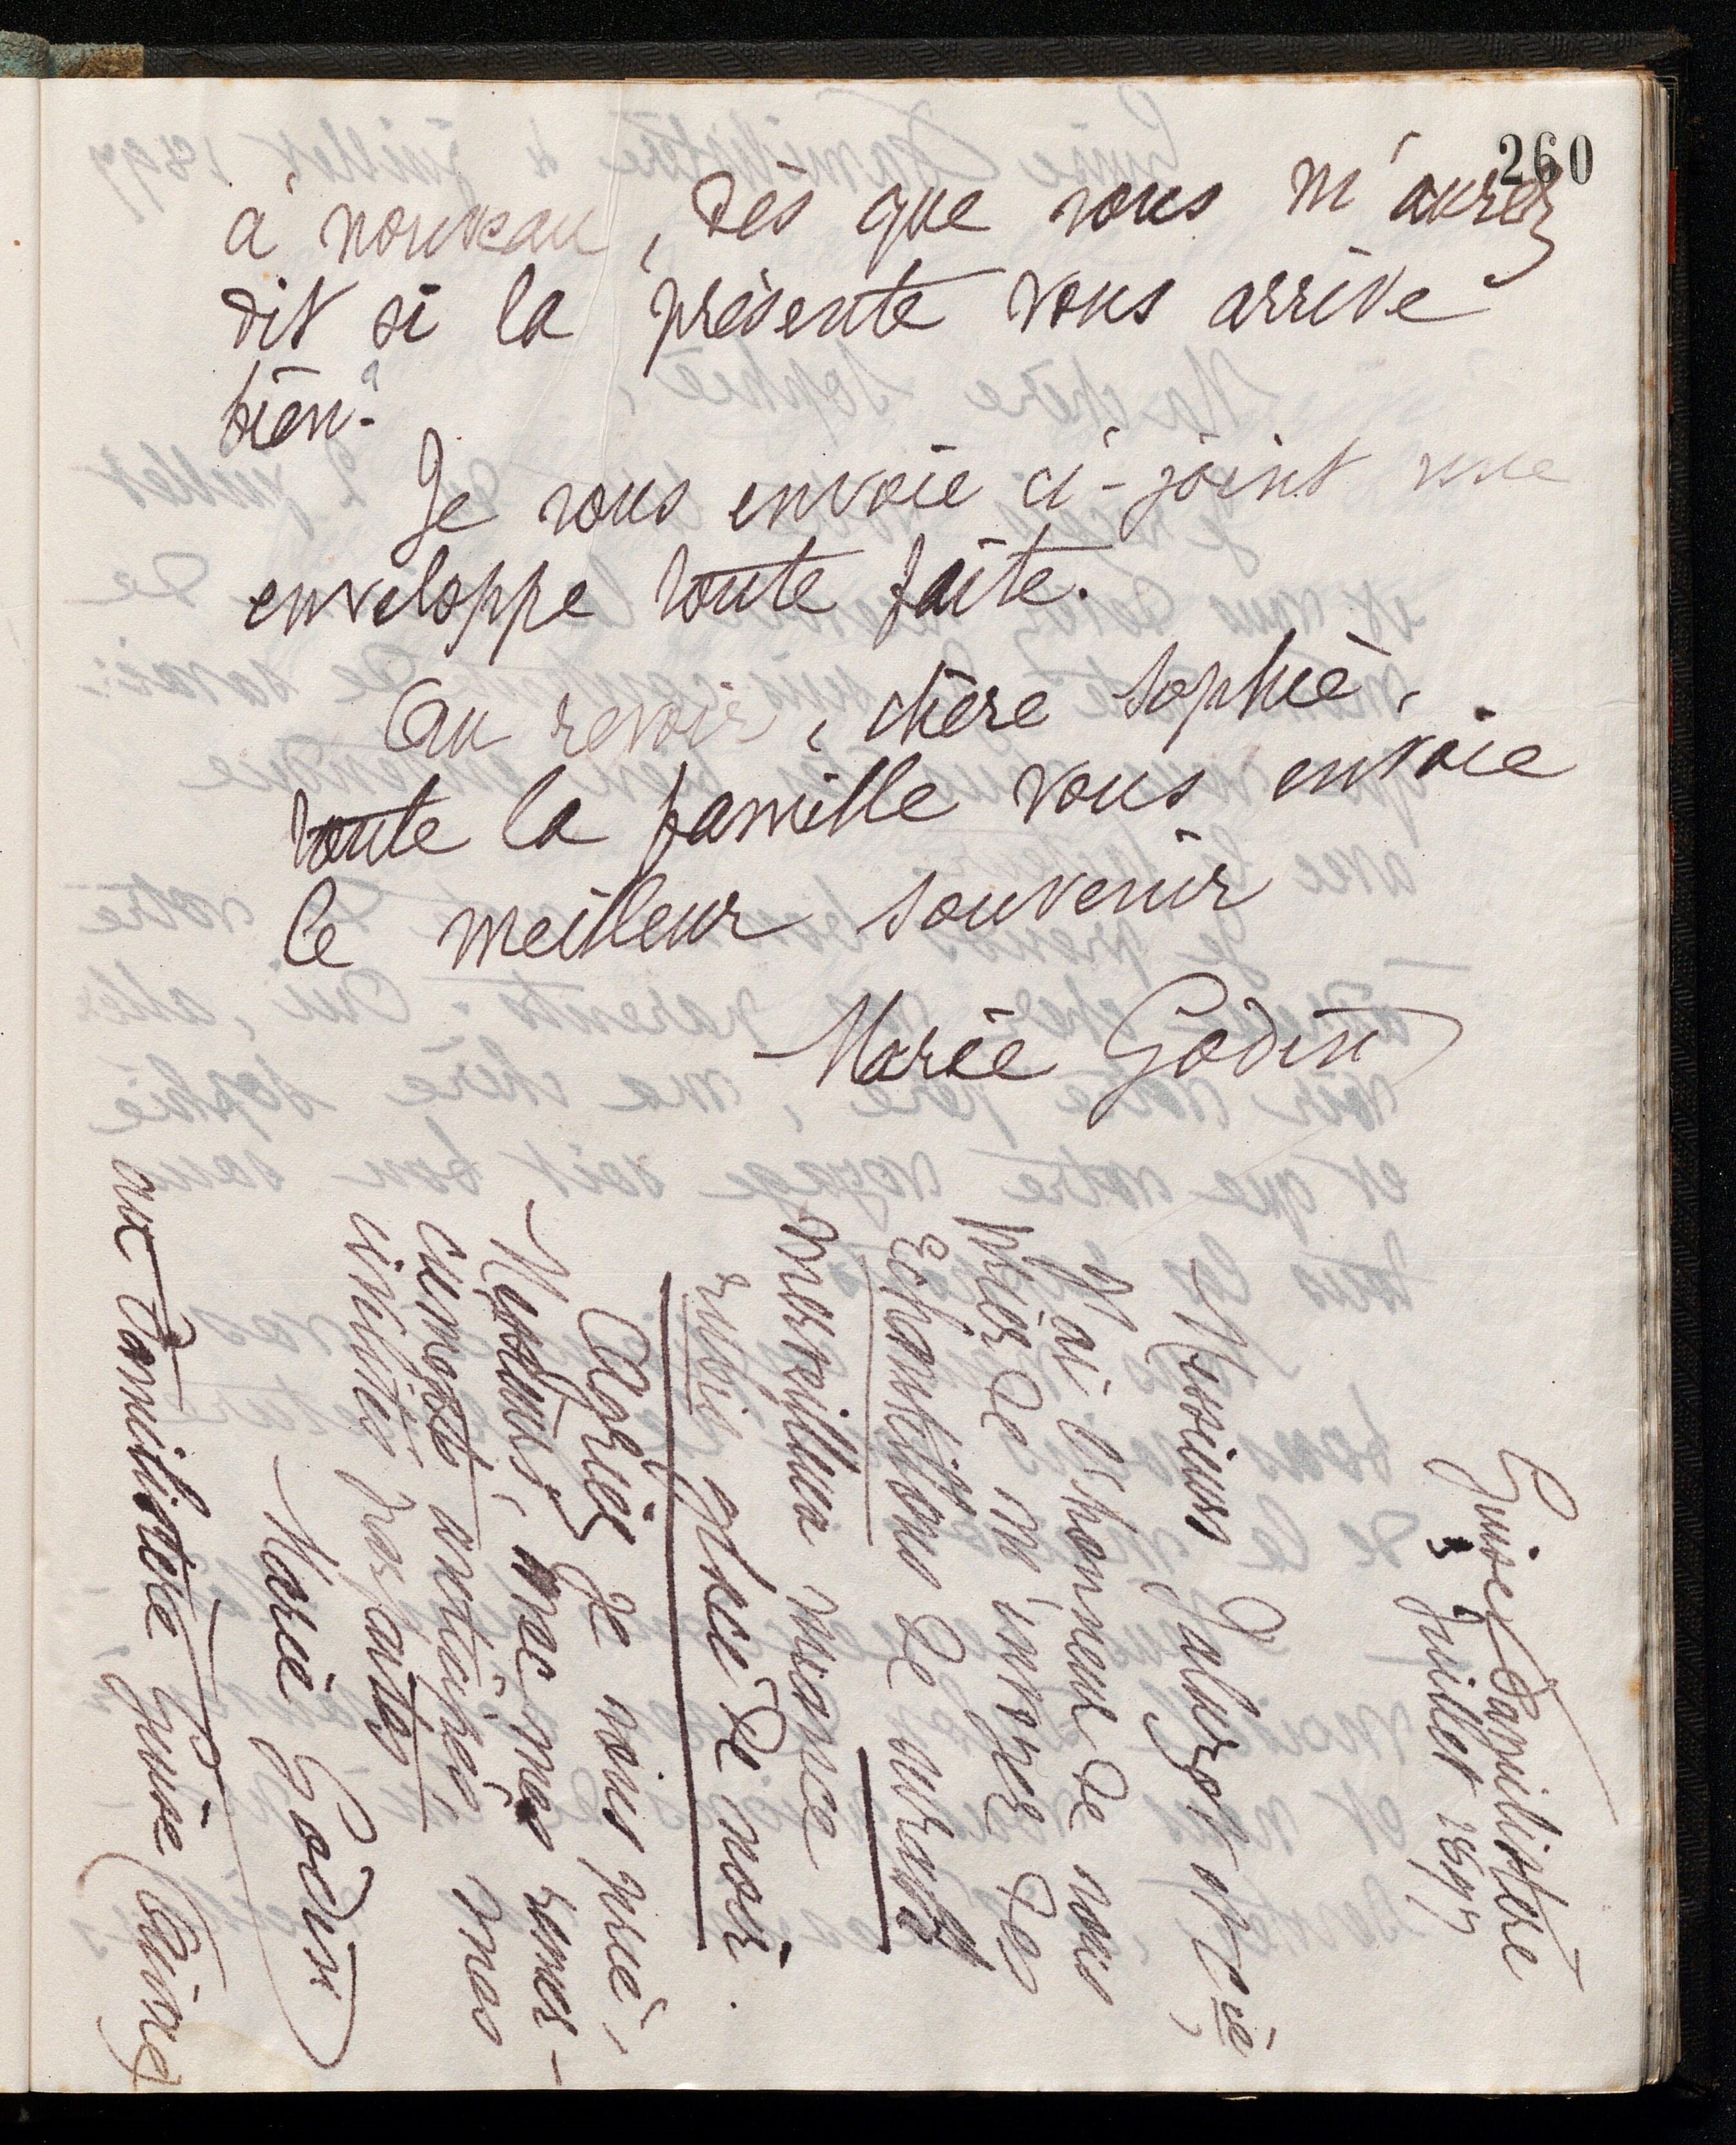 260
à nouveau, dès que vous m'aurez
dit si la présente vous arrive
bien.
Je vous envoie ci-joint une
enveloppe toute faite.
Au revoir, chère Sophie,
toute la famille vous envoie
le meilleur souvenir
Marie Godin
Guise Familistère
3 Juillet 1897
Messieurs Jaluzot et Cie,
J'ai l'honneur de vous
prier de m'envoyer des
échantillons de surah
merveilleux nuance
rubis glacé de noir.
Agréez je vous prie,
Messieurs, avec mes remer-
ciements anticipés, mes
civilités parfaites
Marie Godin
au Familistère Guise (Aisne)